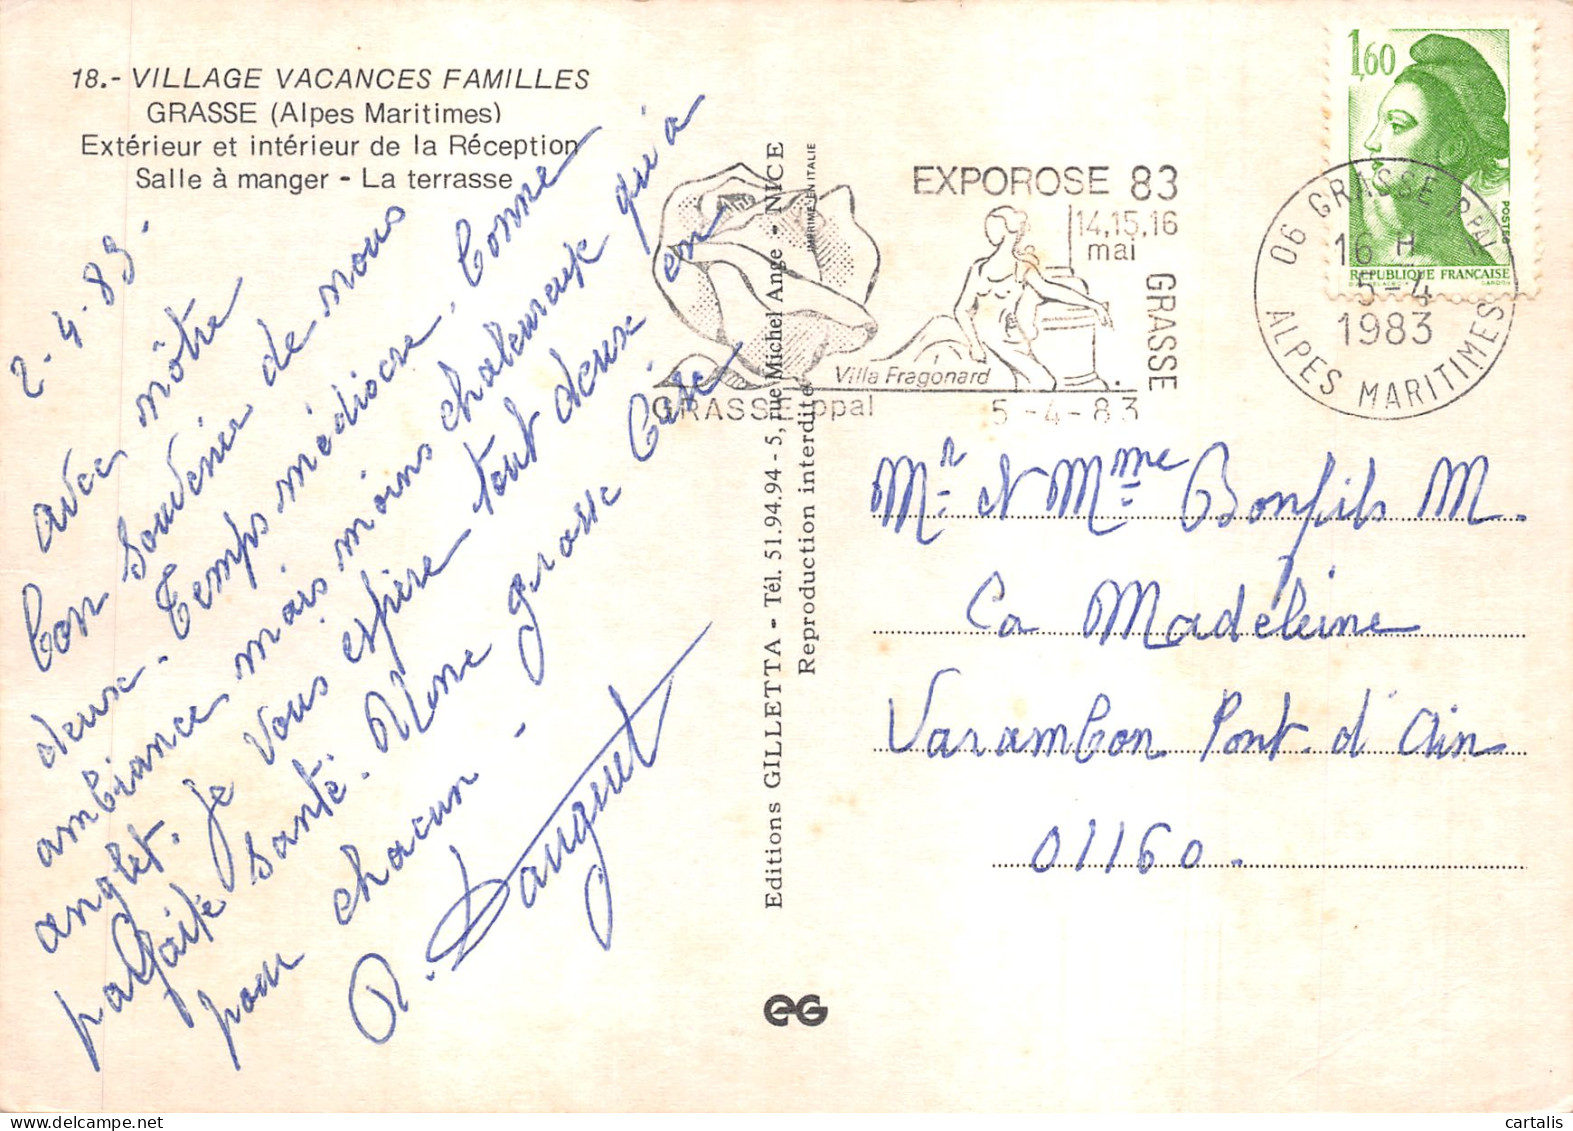 18.- VILLAGE VACANCES FAMILLES
GRASSE (Alpes Maritimes)
Extérieur et intérieur de la Réception
Salle à manger - La terrasse
2-4-83.
avec nôtre
bon souvenir de nous
deux. Temps médiocre, bonne
ambiance mais moins chaleureux qu'à
anglet. Je vous espère tout deux en
parfaite santé. Une grosse bise
pour chacun.
Editions GILLETTA - Tél. 51.94.94 - 5, rue Michel Ange - NICE
IMPRIMÉ EN ITALIE
Reproduction interdite
EG
EXPOROSE 83
14,15,16
mai
GRASSE
Villa Fragonard
GRASSE ppal
5-4-83
06 GRASSE PPAL
16 H
5-4
1983
ALPES MARITIMES
1,60
POSTES
REPUBLIQUE FRANÇAISE
Mr. et Mme. Bonfils M.
La Madeleine
Varambon Pont. d'Ain
01160.
cartalis